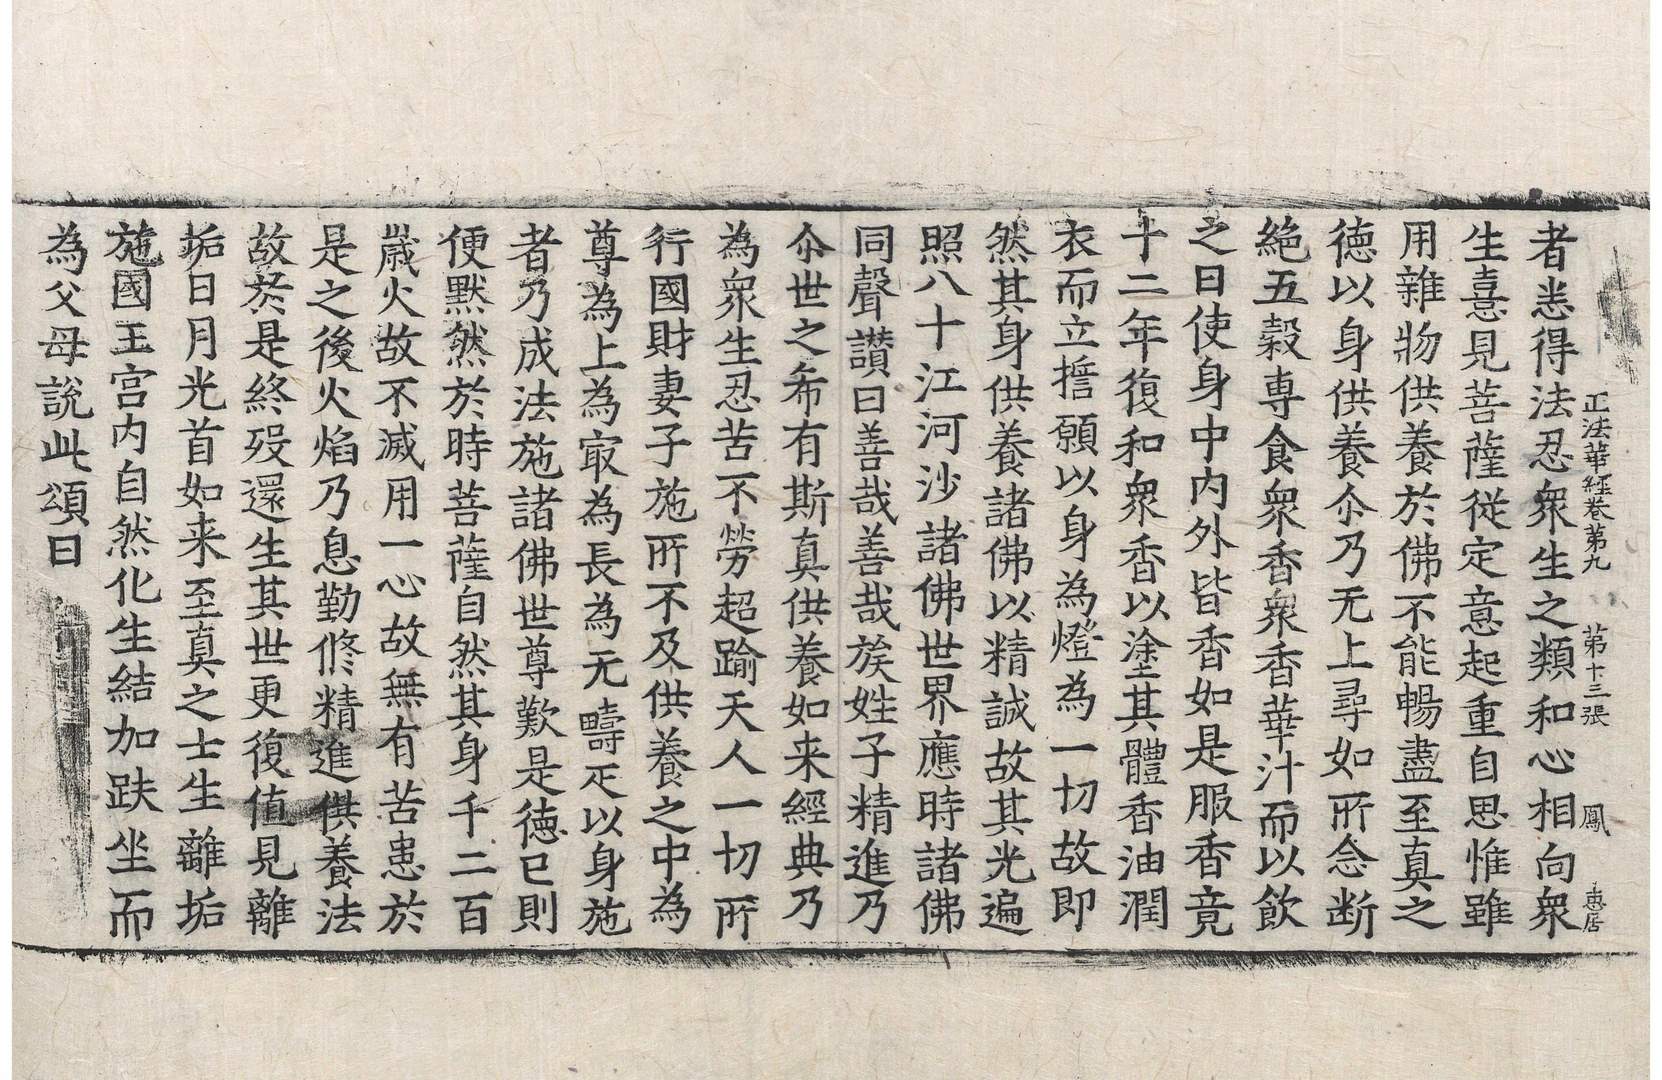 正法華經卷第九 第十三張 鳳 惠居
者恙得法忍衆生之類和心相向衆
生憙見菩薩従定意起重自思惟雖
用雜物供養於佛不能暢盡至真之
徳以身供養尒乃无上尋如所念断
絶五穀専食衆香衆香華汁而以飲
之日使身中内外皆香如是服香竟
十二年復和衆香以塗其體香油潤
衣而立誓願以身為燈為一切故即
然其身供養諸佛以精誠故其光遍
照八十江河沙諸佛世界應時諸佛
同聲讃曰善哉善哉族姓子精進乃
尒世之希有斯真供養如来經典乃
為衆生忍苦不勞超踰天人一切所
行國財妻子施所不及供養之中為
尊為上為㝡為長為无疇疋以身施
者乃成法施諸佛世尊歎是徳已則
便黙然於時菩薩自然其身千二百
歳火故不滅用一心故無有苦患於
是之後火焰乃息勤修精進供養法
故於是終殁還生其世更復值見離
垢日月光首如来至真之士生離垢
施國王宫内自然化生結加趺坐而
為父母説此頌曰